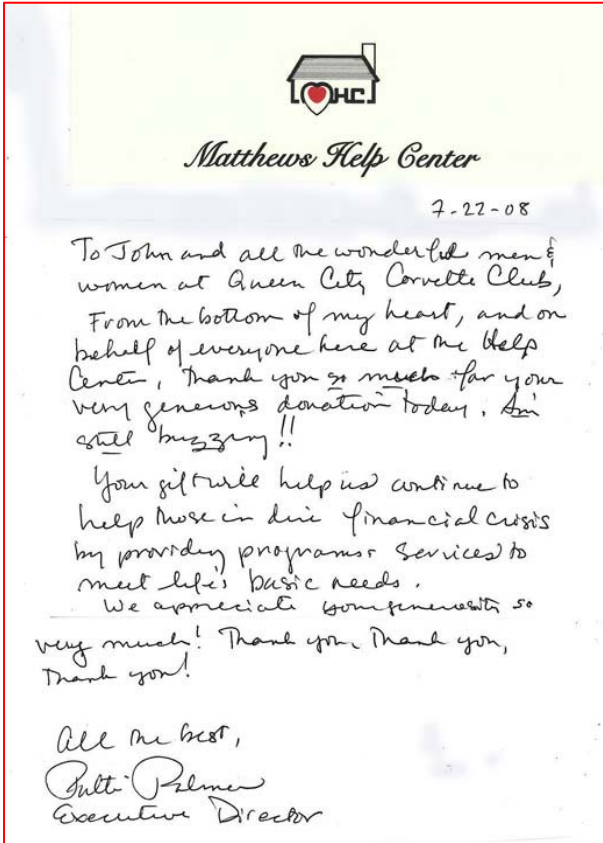 MHC
Matthews Help Center
7-22-08
To John and all the wonderful men &
women at Queen City Corvette Club,
From the bottom of my heart, and on
behalf of everyone here at the Help
Center, Thank you so much for your
very generous donation today. I'm
still buzzing!!
Your gift will help us continue to
help those in dire financial crisis
by providing programs & services to
meet life's basic needs.
We appreciate your generosity so
very much! Thank you, Thank you,
Thank you!
All the best,
Patti Palmer
Executive Director